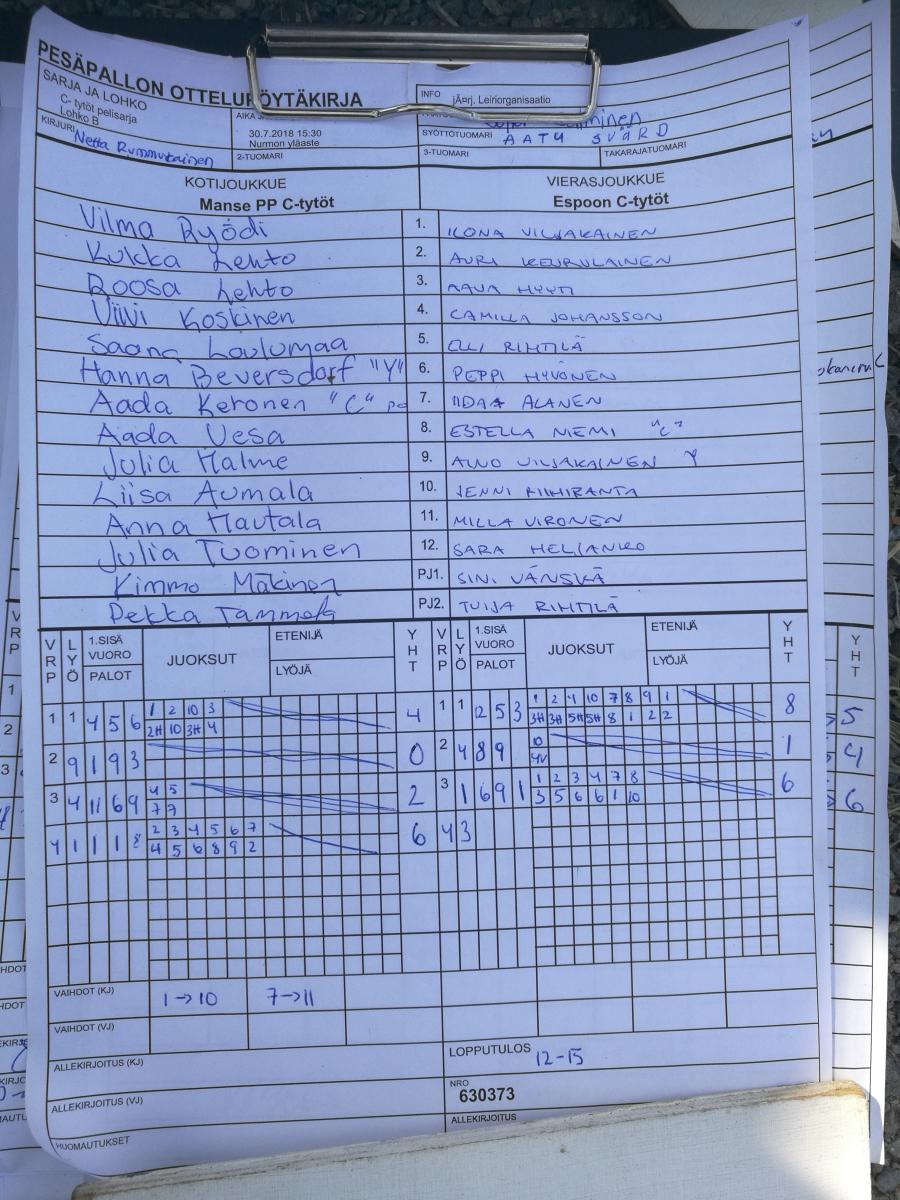 PESÄPALLON OTTELUPÖYTÄKIRJA
SARJA JA LOHKO
C- tytöt pelisarja
Lohko B
KIRJURI
Netta Rummukainen
AIKA
30.7.2018 15:30
Nurmon yläaste
2-TUOMARI
INFO jÄ¤rj. Leiriorganisaatio
SYÖTTÖTUOMARI AATU SVÄRD
3-TUOMARI TAKARAJATUOMARI
KOTIJOUKKUE VIERASJOUKKUE
Manse PP C-tytöt Espoon C-tytöt
Vilma Ryödi 1. ILONA VILJAKAINEN
Kukka Lehto 2. AURI KEURULAINEN
Roosa Lehto 3. AAVA HYYTI
Viivi Koskinen 4. CAMILLA JOHANSSON
Saana Loulumaa 5. OLLI RIHTILÄ
Hanna Beversdorf "Y" 6. PEPPI HYVÖNEN
Aada Keronen "C" 7. IIDA ALANEN
Aada Vesa 8. ESTELLA NIEMI "C"
Julia Halme 9. AINO VILJAKAINEN Y
Liisa Aumala 10. JENNI
Anna Hautala 11. MILLA VIRONEN
Julia Tuominen 12. SARA HELIANKO
Kimmo Mäkinen PJ1. SINI VÄNSKÄ
Pekka Tammela PJ2. TUIJA RIHTILÄ
VRP LYÖ 1.SISÄ VUORO PALOT JUOKSUT ETENIJÄ LYÖJÄ YHT VRP LYÖ 1.SISÄ VUORO PALOT JUOKSUT ETENIJÄ LYÖJÄ YHT
1 1 4 5 6 1 2 10 3 4 1 1 12 5 3 1 2 4 10 7 8 9 1 8
2H 10 3H 4 3H 3H 5H 5H 8 1 2 2
2 9 1 9 3 0 2 4 8 9 10 1
4V
3 4 11 6 9 4 5 2 3 1 6 9 1 1 2 3 4 7 8 6
7 7 3 5 6 6 1 10
4 1 1 1 8 2 3 4 5 6 7 6 4 3
4 5 6 8 9 2
VAIHDOT (KJ) 1→10 7→11
VAIHDOT (VJ)
ALLEKIRJOITUS (KJ) LOPPUTULOS 12-15
ALLEKIRJOITUS (VJ) NRO
630373
HUOMAUTUKSET ALLEKIRJOITUS